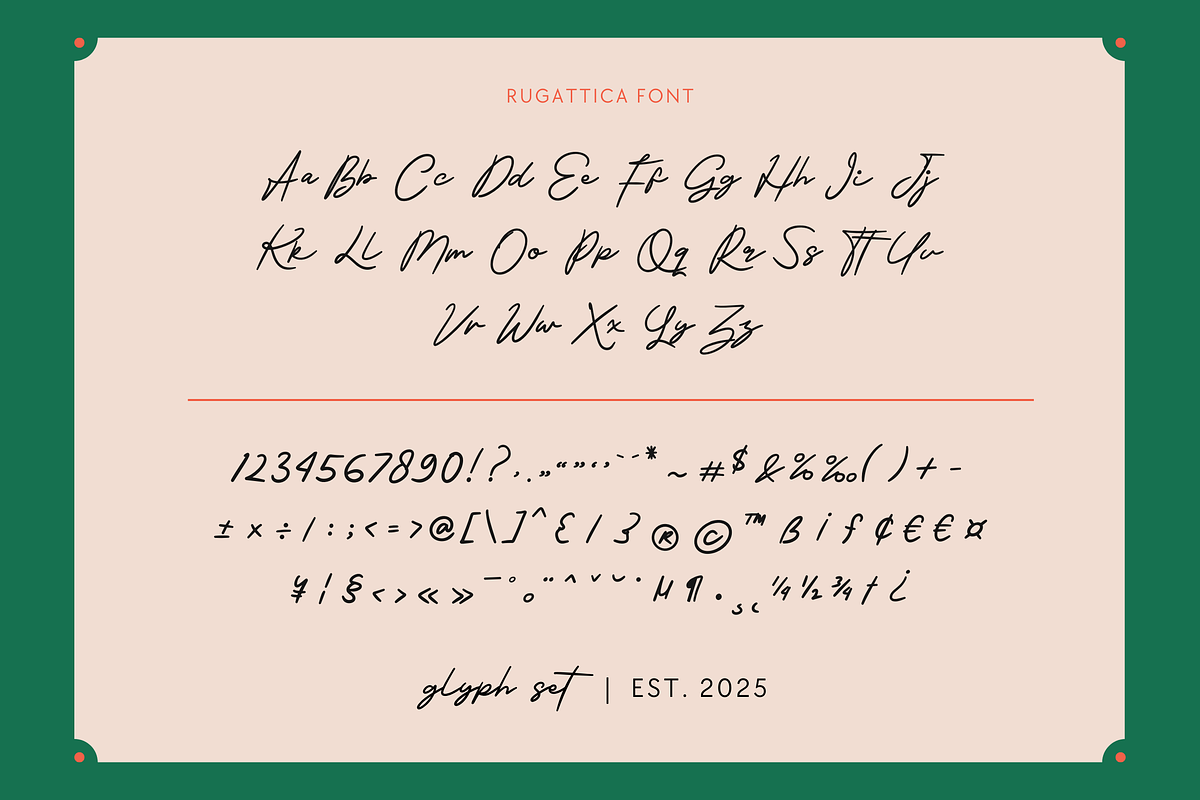 RUGATTICA FONT
Aa Bb Cc Dd Ee Ff Gg Hh Ii Jj
Kk Ll Mm Oo Pp Qq Rr Ss Tt Uu
Vv Ww Xx Yy Zz
1234567890!?,.„“”‘’`´*~#$&%‰()+-
±×÷/:;<=>@[\]^{/}®©™ßiƒ¢€€¤
¥¦§‹›«»¯°˳¨ˆˇ˘˙µ¶•¸˛¼½¾†¿
glyph set | EST. 2025